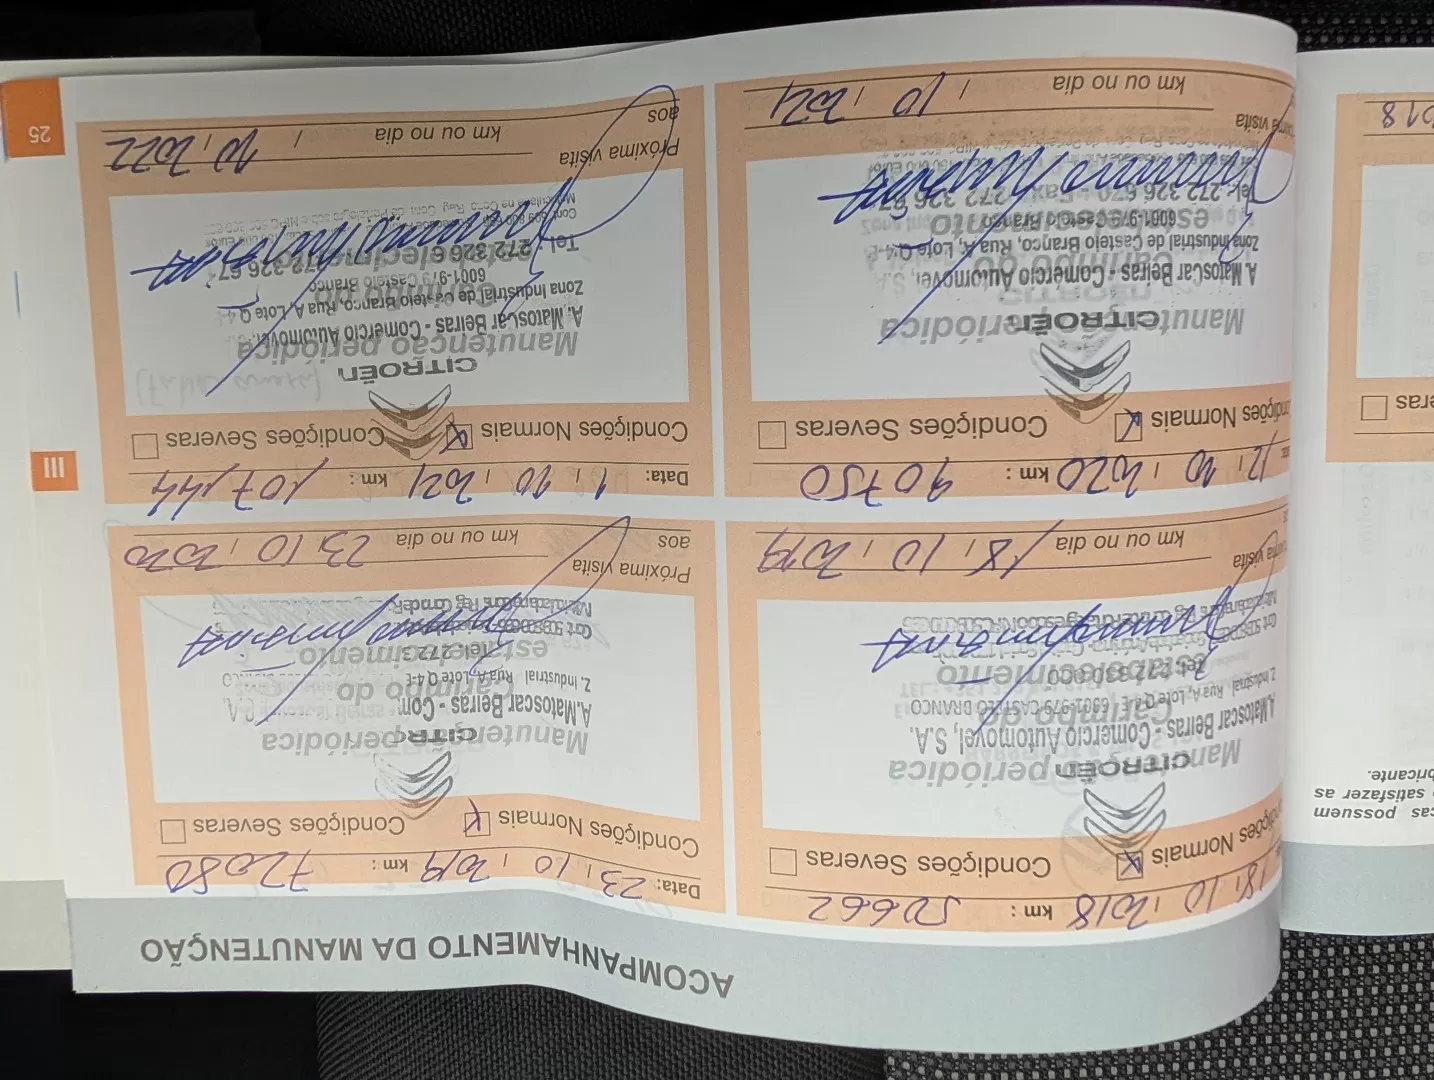 ACOMPANHAMENTO DA MANUTENÇÃO
18, 10, 2018 km : 52662
Normais Condições Severas
CITROËN
Manutenção periódica
A.Matoscar Beiras - Comercio Automovel, S.A.
Z.Industrial Rua A, Lote Q 4 E, 6001-979 CASTELO BRANCO
Carimbo do
km ou no dia 18, 10, 2019
Data: 23, 10, 2019 km : 72080
Condições Normais Condições Severas
CITR
Manutenção periódica
A.Matoscar Beiras - Com
Z. Industrial Rua A, Lote Q 4-E
carimbo do
Tel: 272 3
estabelecimento
Próxima visita
aos km ou no dia 23, 10, 2020
12, 10, 2020 km : 90750
Condições Normais Condições Severas
CITROËN
Manutenção periódica
A MatosCar Beiras - Comércio Automóvel, S.A.
Zona Industrial de Castelo Branco, Rua A, Lote Q 4-E
6001-979 Castelo Branco
Tel.: 272 326 670 - Fax: 272 326 671
visita
km ou no dia / 10, 2021
Data: 1, 10, 2021 km : 107,144
Condições Normais Condições Severas
CITROËN
Manutenção periódica
A. Matoscar Beiras - Comércio Automóvel,
Zona Industrial de Castelo Branco, Rua A, Lote Q 4
6001-979 Castelo Branco
Tel.: 272 326 6 272 326 671
Próxima visita
aos km ou no dia / 10, 2022
III
25
018
eras
cas possuem
satisfazer as
bricante.